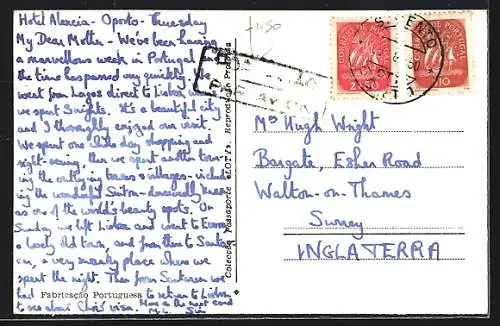 Hotel Aliança - Oporto - Thursday
My Dear Mother - We've been having
a marvellous week in Portugal &
the time has passed very quickly. We
went from Lagos direct to Lisbon where
we spent 5 nights. It's a beautiful city
and I thoroughly enjoyed our visit.
We spent one whole day shopping and
sight-seeing, then we spent another tour-
ing the outlying towns & villages - includ-
ing the wonderful Sintra - deservedly known
as one of the world's beauty spots. On
Sunday we left Lisbon and went to
a lovely old town, and from there to Santar-
em, a very sneaky place where we
spent the night. Then from Santarem we
had to return to Lisbon
to see about Chris' visa. More on the next card
M.L.
Fabricação Portuguesa
Colecção Passaporte «LOTY». Reprodução Proibida
CORREIO PORTUGAL
2$50
PORTUGAL
10
Mrs Hugh Wright
Bargate, Esher Road
Walton-on-Thames
Surrey
INGLATERRA